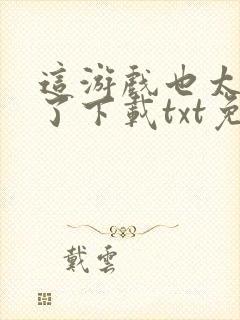 這游戲也太
了下載txt免
戴雲